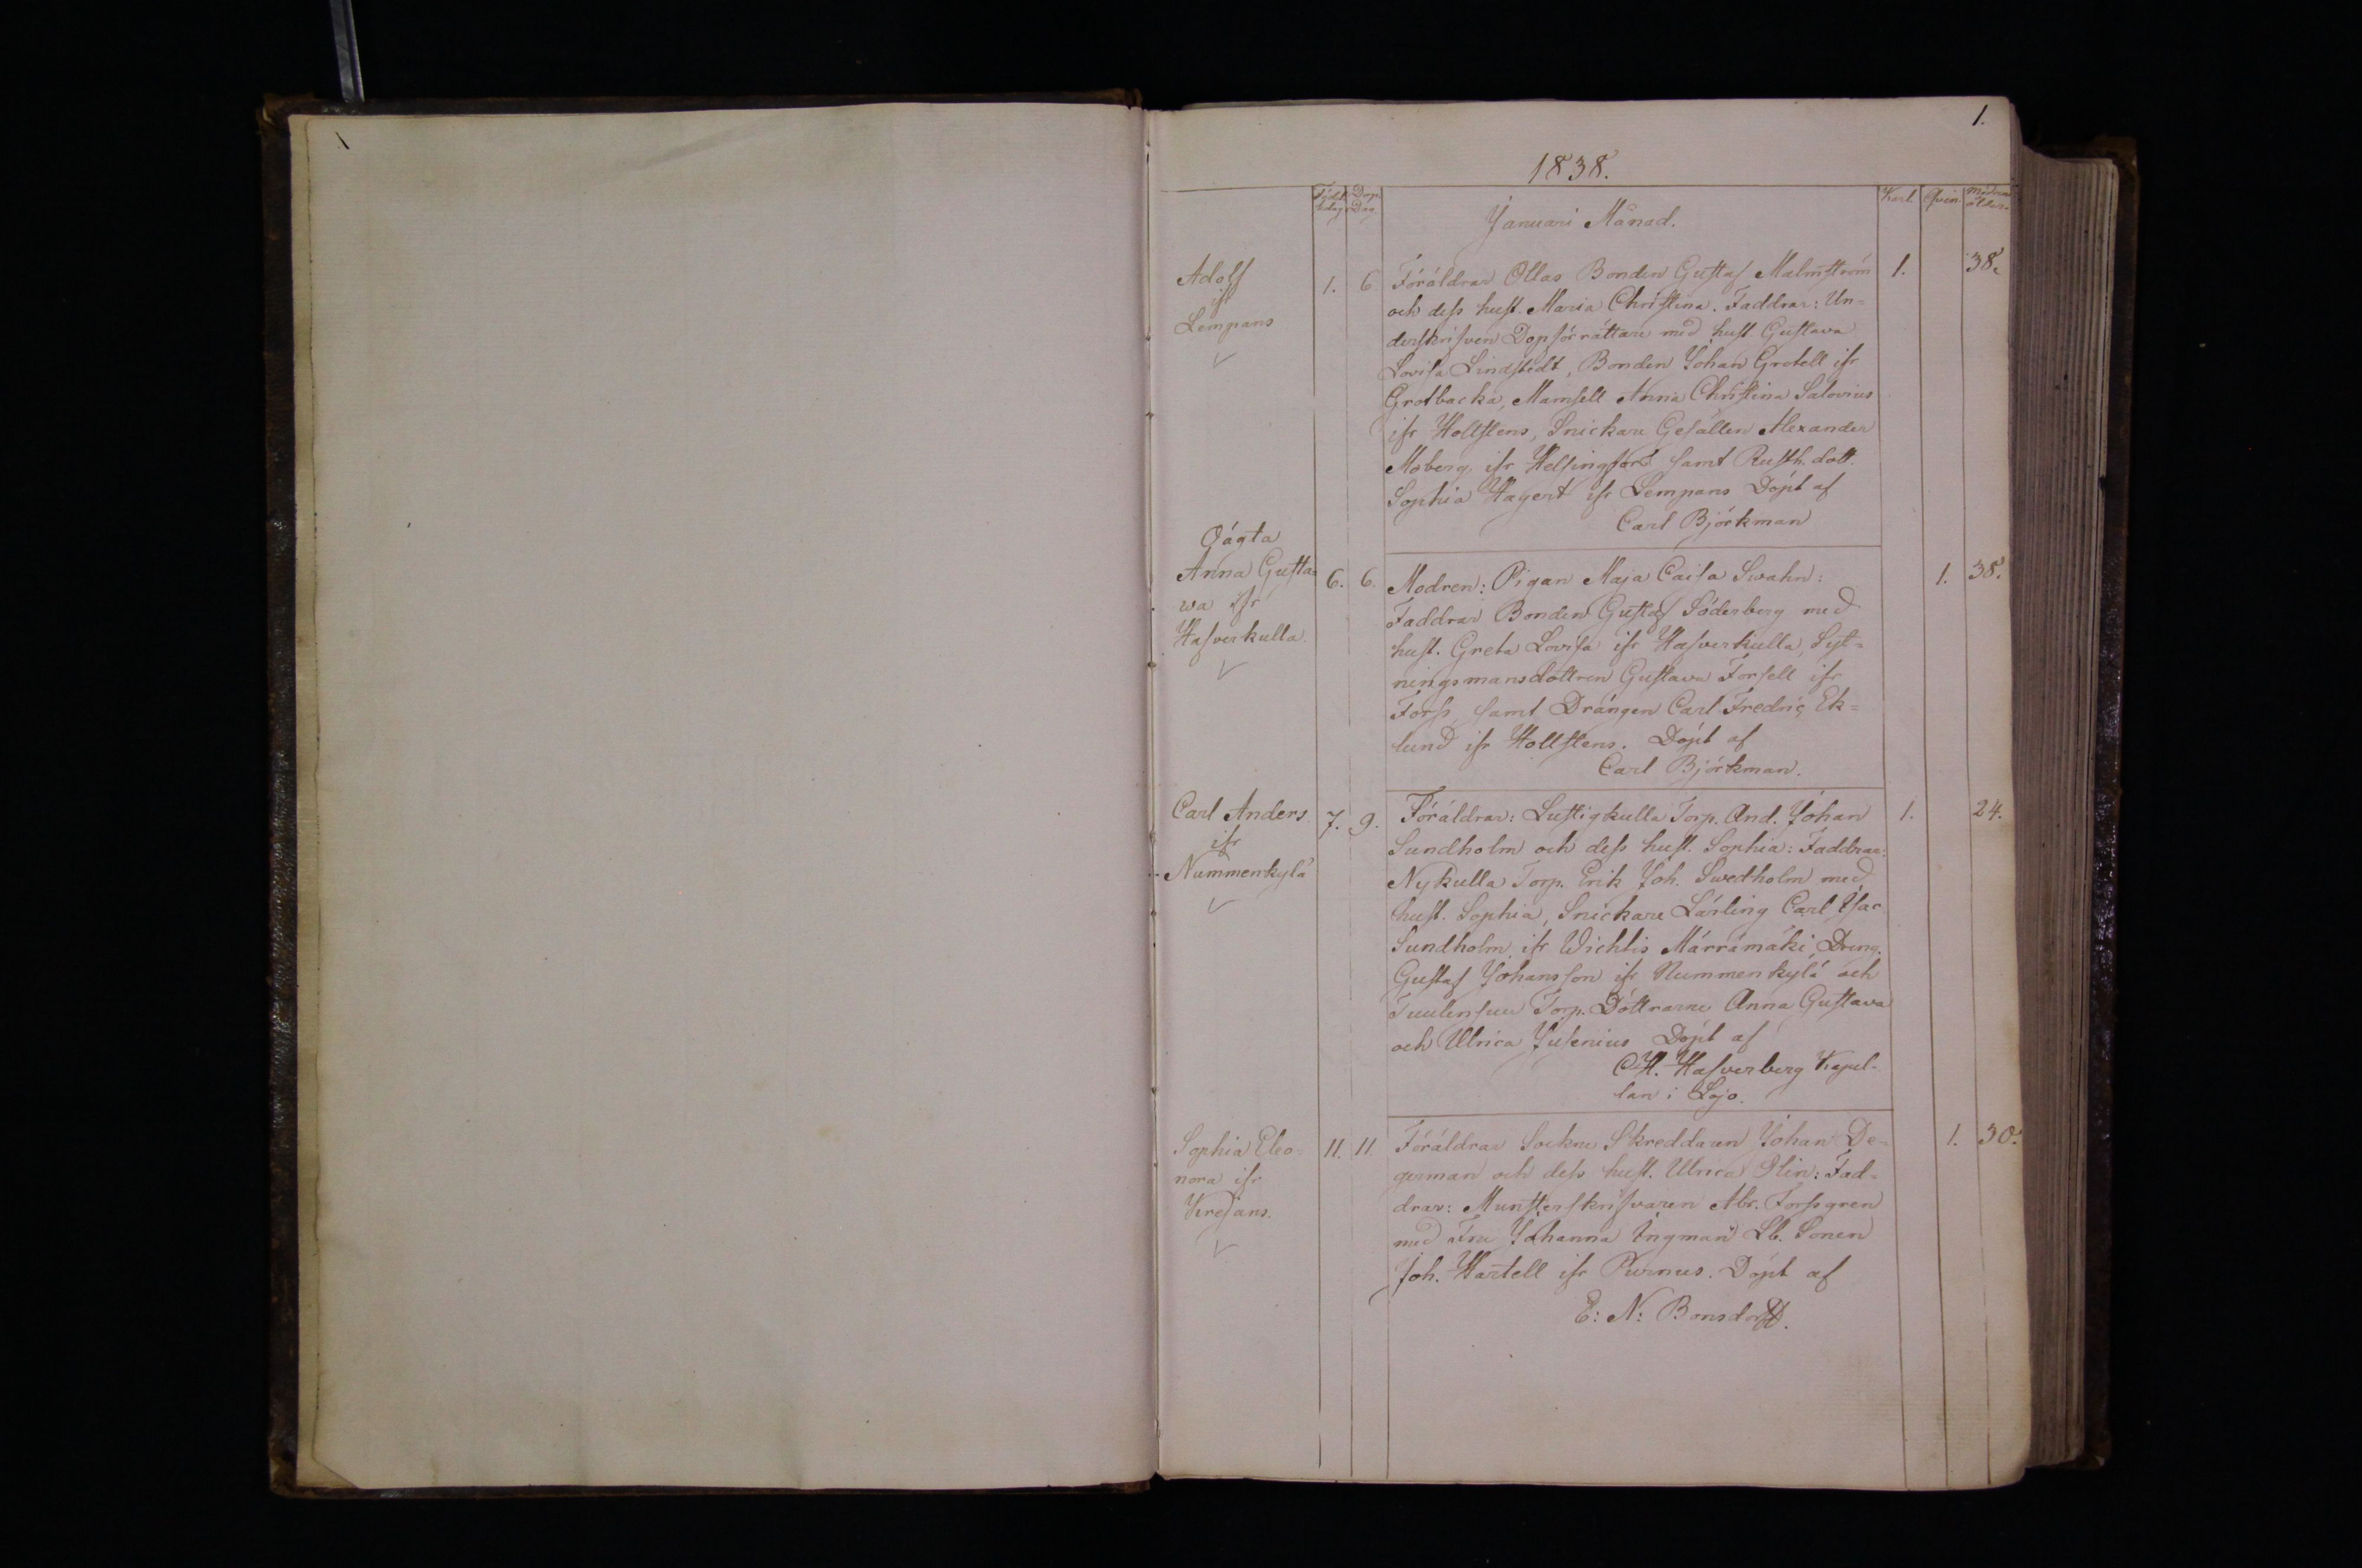 1.
1838.
Födelsedag Dop Dag Januari Månad. Karl. Qvin. Modrens ålder.
Adolf 1. 6 Föräldrar Ollas Bonden Gustaf Malmström 1. 38.
ifr och dess hust. Maria Christina. Faddrar: Un=
Lempans derskrifven Dopförrättare med hust. Gustava
Lovisa Lindstedt, Bonden Johan Grotell ifr
Grotbacka, Mamsell Anna Christina Salovius
ifr Hollstens, Snickare Gesällen Alexander
Moberg, ifr Helsingfors samt Rusth. dott.
Sophia Hagert ifr Lempans Döpt af
Carl Björkman
Oägta
Anna Gusta= 6. 6. Modren: Pigan Maja Caisa Swahn: 1. 38.
wa ifr Faddrar Bonden Gustaf Söderberg med
Hafverkulla. hust. Greta Lovisa ifr Hafverkulla, Syt=
ningsmansdottren Gustava Forsell ifr
Forss, samt Drängen Carl Fredric Ek=
lund ifr Hollstens. Döpt af
Carl Björkman.
Carl Anders 7. 9. Föräldrar: Lustigkulla Torp. And. Johan 1. 24.
ifr Sundholm och dess hust. Sophia: Faddrar:
Nummenkylä Nykulla Torp. Erik Joh. Swedholm med
hust. Sophia, Snickare Lärling Carl Isac
Sundholm, ifr Wichtis Märrämäki, Dreng.
Gustaf Johansson ifr Nummenkylä och
Tuulensuu Torp. Döttrarne Anna Gustava
och Ulrica Jusenius Döpt af
C. H. Hafverberg Kapel-
lan i Lojo.
Sophia Eleo- 11. 11. Föräldrar Sockne Skreddaren Johan De= 1. 30.
nora ifr german och dess hust. Ulrica Olin: Fad=
Kresans. drar: Munsterskrifvaren Abr. Forssgren
med Fru Johanna Ingman Lb. Sonen
Joh. Hartell ifr Purnus. Döpt af
E: N: Bonsdorff.